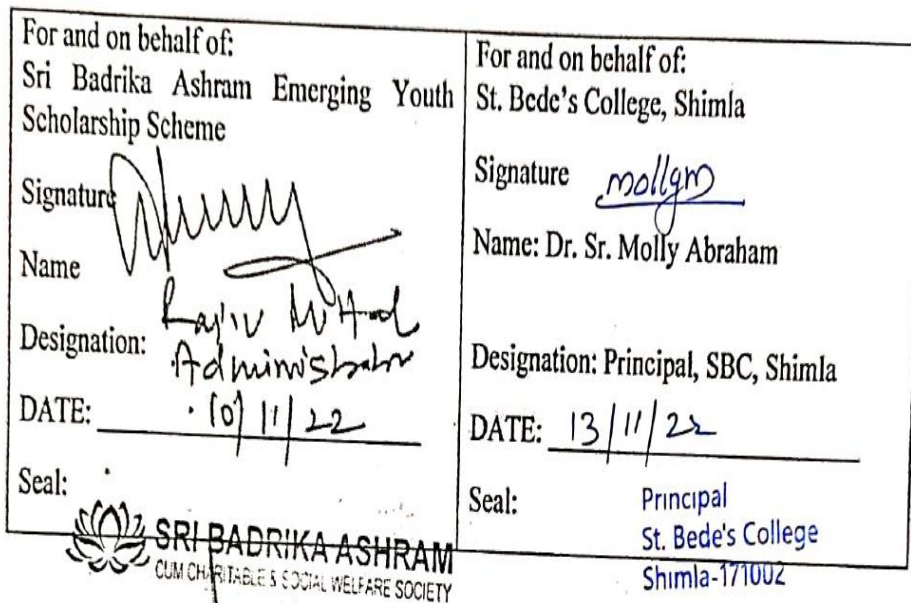 For and on behalf of:
Sri Badrika Ashram Emerging Youth
Scholarship Scheme
Signature
Name
Rajiv
Designation:
Administrator
DATE: 10/11/22
Seal:
SRI BADRIKA ASHRAM
CUM CHARITABLE & SOCIAL WELFARE SOCIETY
For and on behalf of:
St. Bede's College, Shimla
Signature mollym
Name: Dr. Sr. Molly Abraham
Designation: Principal, SBC, Shimla
DATE: 13/11/22
Seal:
Principal
St. Bede's College
Shimla-171002